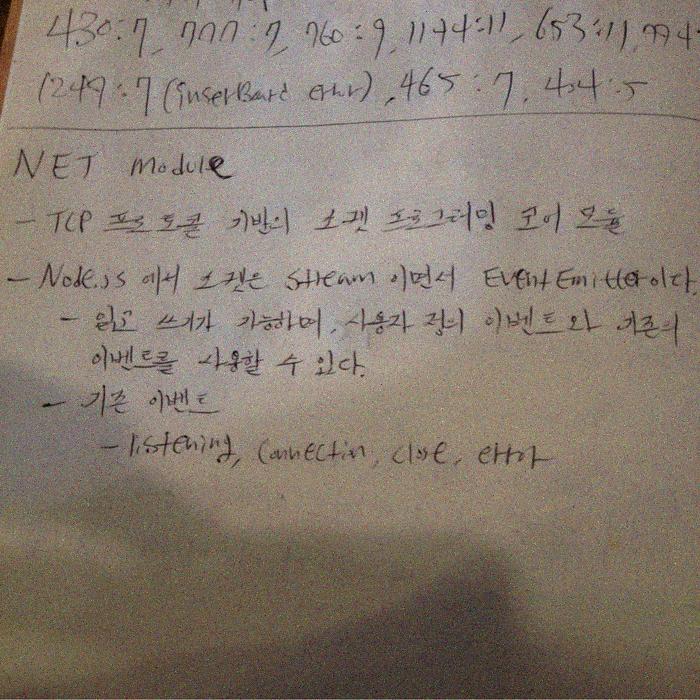 430:7, 777:7, 760:9, 1174:11, 653:11, 774
1249:7 (inserBard error), 465:7, 404:5
NET module
- TCP 프로토콜 기반의 소켓 프로그래밍 코어 모듈
- Node.js 에서 소켓은 stream 이면서 EventEmitter이다.
- 읽고 쓰기가 가능하며, 사용자 정의 이벤트와 기존의
이벤트를 사용할 수 있다.
- 기존 이벤트
- listening, connection, close, error